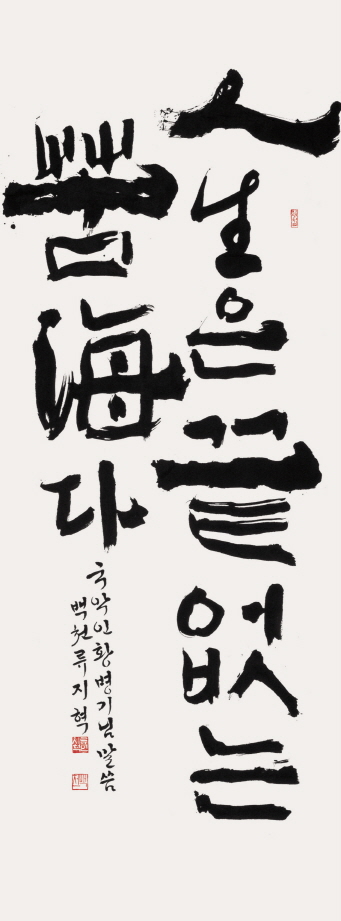 人生은끝없는
苦海다
국악인황병기님말씀
백천류지혁